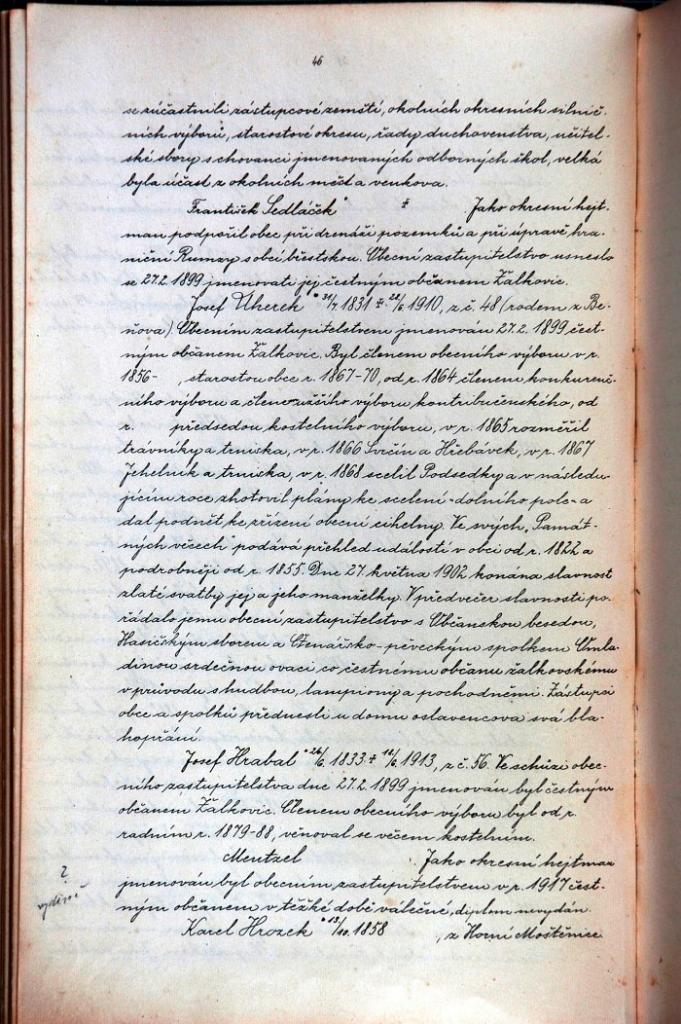 46
se súčastnili zástupcové zemští, okolních okresních silnič-
ních výborů, starostové okresu, řady duchovenstva, učitel-
ské sbory s chovanci jmenovaných odborných škol, velká
byla účast z okolních měst a venkova.
František Sedláček * ‡ Jako okresní hejt-
man podpořil obec při drenáži pozemků a při úpravě hra-
niční Rumzy s obcí břestskou. Obecní zastupitelstvo usneslo
se 27.2. 1899 jmenovati jej čestným občanem Žalkovic.
Josef Uherek * 31/7 1831 ‡ 22/6 1910, z č. 48 (rodem z Be-
ňova). Obecním zastupitelstvem jmenován 27.2. 1899 čest-
ným občanem Žalkovic. Byl členem obecního výboru v r.
1856- , starostou obce r. 1867-70, od r. 1864 členem konkurenč-
ního výboru a člen užšího výboru kontribučenského, od
r. předsedou kostelního výboru, v r. 1865 rozměřil
trávníky a trniska, v r. 1866 Svrčín a Hřebávek, v r. 1867
Jehelník a trniska, v r. 1868 scelil Podsedky a v následu-
jícím roce zhotovil plány ke scelení dolního pole a
dal podnět ke zřízení obecní cihelny. Ve svých „Památ-
ných věcech" podává přehled událostí v obci od r. 1822 a
podrobněji od r. 1855. Dne 27. května 1902 konána slavnost
zlaté svatby jej a jeho manželky. V předvečer slavnosti po-
řádalo jemu obecní zastupitelstvo s Občanskou besedou,
Hasičským sborem a Čtenářsko-pěveckým spolkem Omla-
dinou srdečnou ovaci co čestnému občanu žalkovskému
v průvodu s hudbou, lampiony a pochodněmi. Zástupci
obce a spolků přednesli u domu oslavencova svá bla-
hopřání.
Josef Hrabal * 26/6 1833 ‡ 18/6 1913, z č. 56. Ve schůzi obec-
ního zastupitelstva dne 27.2. 1899 jmenován byl čestným
občanem Žalkovic. Členem obecního výboru byl od r.
radním r. 1879-88, věnoval se věcem kostelním.
Mentzel . Jako okresní hejtman
?
jmenován byl obecním zastupitelstvem v r. 1917 čest-
ným občanem v těžké době válečné, diplom nevydán.
Karel Hrozek * 1858 , z Horní Moštěnice